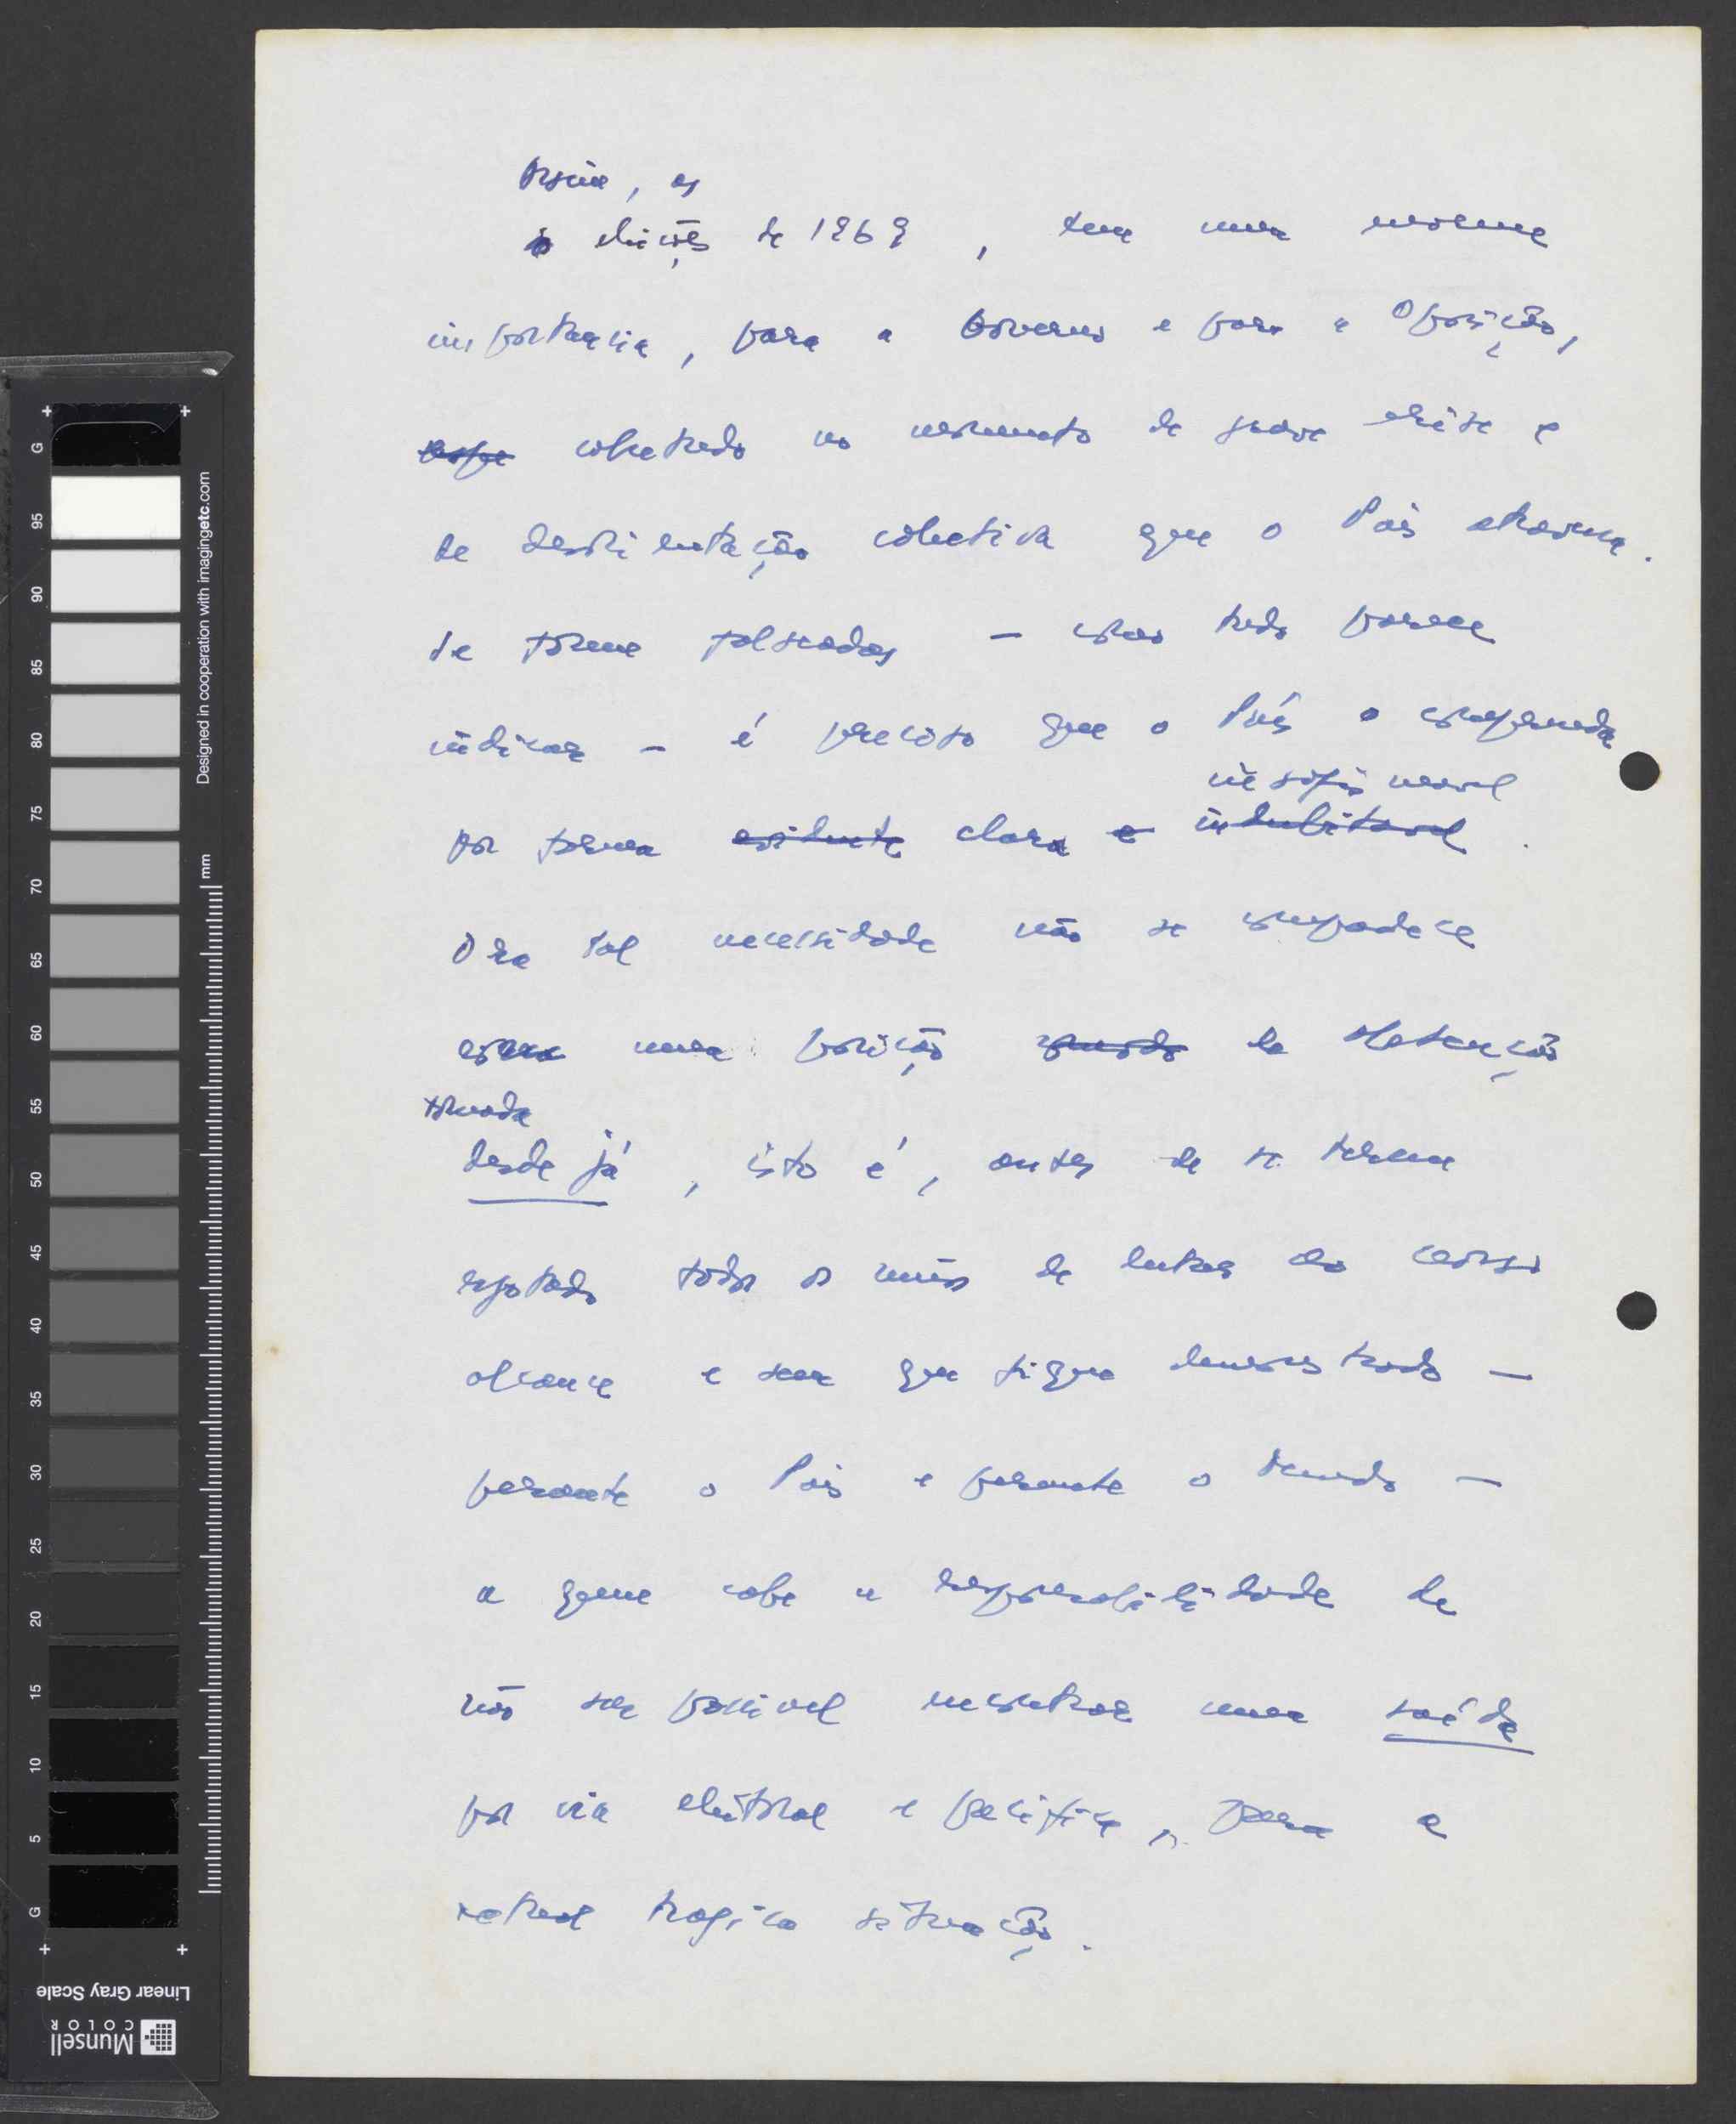 Assim, as
eleições de 1969, tem uma enorme
importancia, para o Governo e para a Oposição,
sobretudo no momento de grave crise e
de desorientação colectiva que o País atravessa.
Se forem falseadas — como tudo parece
indicar — é preciso que o País o compreenda
insofismavel
por forma evidente clara e indubitavel.
Ora tal necessidade não se compadece
com uma posição de abstenção
tomada
desde já, isto é, antes de se terem
esgotado todos os meios de luta ao nosso
alcance e sem que fique demonstrado —
perante o País e perante o mundo —
a quem cabe a responsabilidade de
não ser possivel encontrar uma saída
por via eleitoral e pacifica, para a
actual tragica situação.
G 95 90 85 80 75 70 65 60 55 50 45 40 35 30 25 20 15 10 5 G
Designed in cooperation with imagingetc.com
mm
Linear Gray Scale
Munsell
COLOR